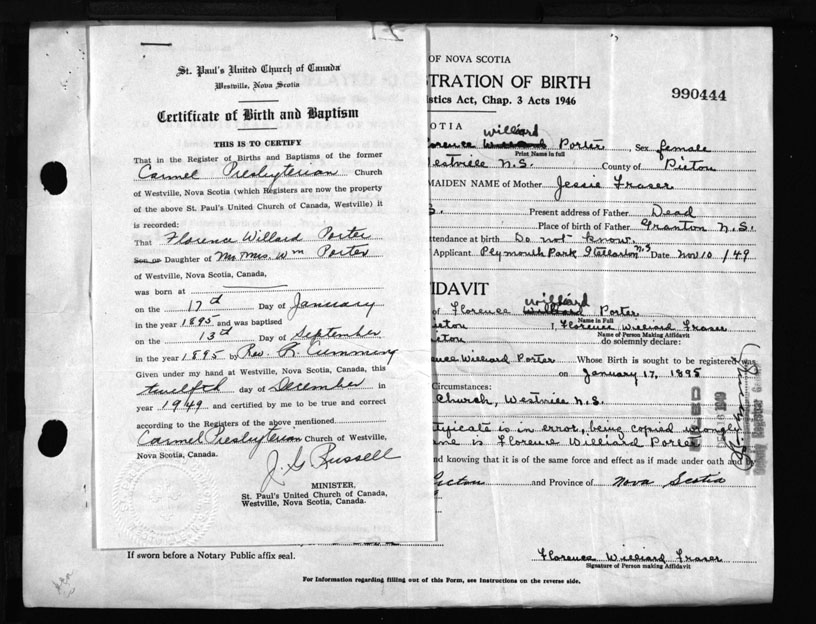 St. Paul's United Church of Canada
Westville, Nova Scotia
Certificate of Birth and Baptism
THIS IS TO CERTIFY
That in the Register of Births and Baptisms of the former
Carmel Presbyterian Church
of Westville, Nova Scotia (which Registers are now the property
of the above St. Paul's United Church of Canada, Westville) it
is recorded:
That Florence Willard Porter
Son or Daughter of Mr. Mrs. Wm Porter
of Westville, Nova Scotia, Canada,
was born at
on the 17th Day of January
in the year 1895 and was baptised
on the 13th Day of September
in the year 1895 by Rev. R. Cumming
Given under my hand at Westville, Nova Scotia, Canada, this
twelfth day of December in
year 1949 and certified by me to be true and correct
according to the Registers of the above mentioned
Carmel Presbyterian Church of Westville,
Nova Scotia, Canada.
J. G. Russell
MINISTER,
St. Paul's United Church of Canada,
Westville, Nova Scotia, Canada.
If sworn before a Notary Public affix seal.
OF NOVA SCOTIA
STRATION OF BIRTH
istics Act, Chap. 3 Acts 1946
990444
OTIA
williard
orence Porter Sex female
Print Name in full
estville N.S. County of Pictou
MAIDEN NAME of Mother Jessie Fraser
S. Present address of Father Dead
Place of birth of Father Granton N.S.
ttendance at birth Do not know.
Applicant Plymouth Park Stellarton N.S Date Nov 10 / 49
FIDAVIT
williard
of Florence Porter
Name in Full
ictou I, Florence Williard Fraser
Name of Person Making Affidavit
ictou do solemnly declare:
ence Willard Porter Whose Birth is sought to be registered was
on January 17, 1895
Circumstances:
Church, Westville N.S.
rtificate is in error, being copied wrongly
ame is Florence Williard Porter
nd knowing that it is of the same force and effect as if made under oath and by
ictou and Province of Nova Scotia
Florence Williard Fraser
Signature of Person making Affidavit
For Information regarding filling out of this Form, see Instructions on the reverse side.